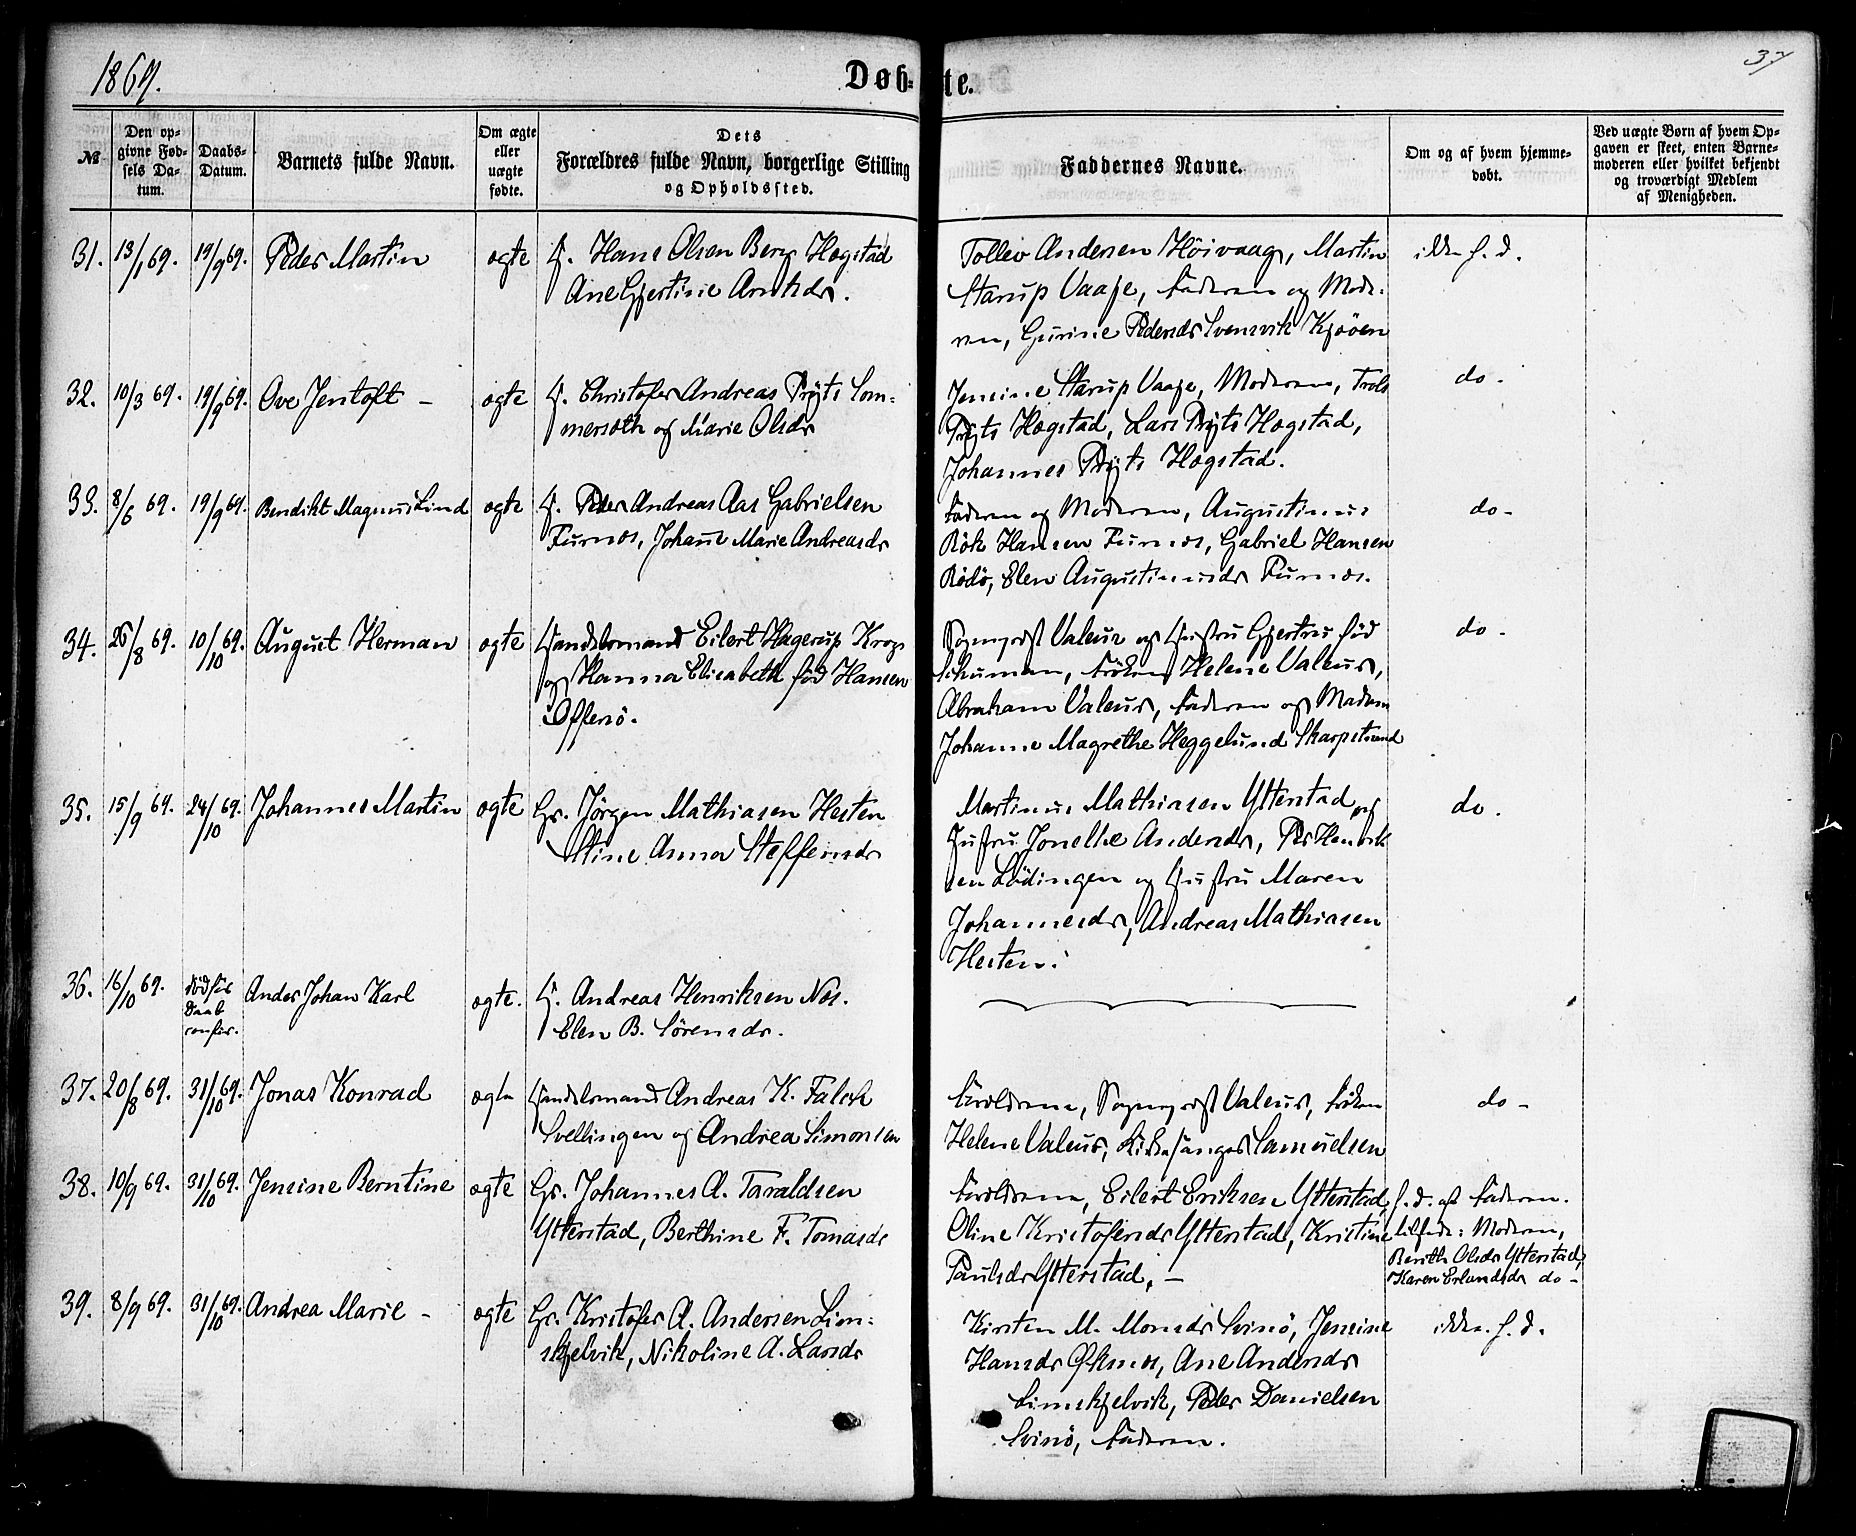 1869.
Døb-
te.
37
№
Den op-
givne Fød-
sels Da-
tum.
Daabs-
Datum.
Barnets fulde Navn.
Om ægte
eller
uægte
fødte.
Dets
Forældres fulde Navn, borgerlige Stilling
og Opholdssted.
Faddernes Navne.
Om og af hvem hjemme-
døbt.
Ved uægte Børn af hvem Op-
gaven er skeet, enten Barne-
moderen eller hvilket bekjendt
og troværdigt Medlem
af Menigheden.
31. 13/1 69. 19/9 69. Peder Martin ægte Hans Olsen Berg Hægstad
Ane Gjertine Arntsdr.
Tollev Andersen Höivaag, Martin
Starup Vaage, Faderen og Mode-
ren, Gurine Pedersdr Svensvik Kjöen
ikke h. d.
32. 10/3 69. 19/9 69. Ove Jentoft - ægte Christofer Andreas Prÿts Som-
mersæth og Marie Olsdr
Jensine Starup Vaage, Moderen, Trols
Prÿts Hægstad, Lars Prÿts Hægstad,
Johannes Prÿts Hægstad.
do.
33. 8/6 69. 19/9 69. Bendikt Magnus Lind ægte Peder Andreas Aas Gabrielsen
Furnæs, Johane Marie Andreasdr
Faderen og Moderen, Augustinus
Rök Hansen Furnæs, Gabriel Hansen
Rödö, Elen Augustinusdr Furnæs.
do-
34. 26/8 69. 10/10 69. August Herman ægte Handelsmand Eilert Hagerup Krog
og Hanna Elisabeth fød Hansen
Offersö.
Sogneprest Valeur og Hustru Gjertru fød
Schuman, Fröken Helene Valeur,
Abraham Valeur, Faderen og Madam
Johanne Magrethe Heggelund Skarpstrand
do.
35. 15/9 69. 24/10 69. Johannes Martin ægte Gr. Jörgen Mathiasen Hesten
Stine Anna Steffensdr
Martinus Mathiasen Ytterstad og
Hustru Jonette Andersdr, Peder Henrik
sen Lödingen og Hustru Maren
Johannesdr, Andreas Mathiasen
Hesten.
do.
36. 16/10 69. död før
Daab
confer.
Anders Johan Karl ægte. Andreas Henriksen Næs.
Elen B. Sörensdr.
37. 20/8 69. 31/10 69. Jonas Konrad ægte Handelsmand Andreas K. Falch
Svellingen og Andrea Simonsen
Forældrene, Sogneprest Valeur, Fröken
Helene Valeur, Kirkesanger Samuelsen
do-
38. 10/9 69. 31/10 69. Jensine Berntine ægte Gr. Johannes A. Taraldsen
Ytterstad, Berthine F. Tomasdr
Forældrene, Eilert Eriksen Ytterstad,
Oline Kristofersdr Ytterstad, Kristine
Paulsdr Ytterstad, -
h. d. af Faderen.
tilstede: Moderen,
Berith Olsdr Ytterstad,
Karen Erlandsdr do-
39. 8/9 69. 31/10 69. Andrea Marie - ægte Gr. Kristofer A. Andersen Sim-
skjelvik, Nikoline A. Larsdr
Kirsten M. Monsdr Svinö, Jensine
Hansdr Øksnes, Ane Andersdr
Simskjelvik, Peder Danielsen
Svinö, Faderen.
ikke. h. d.